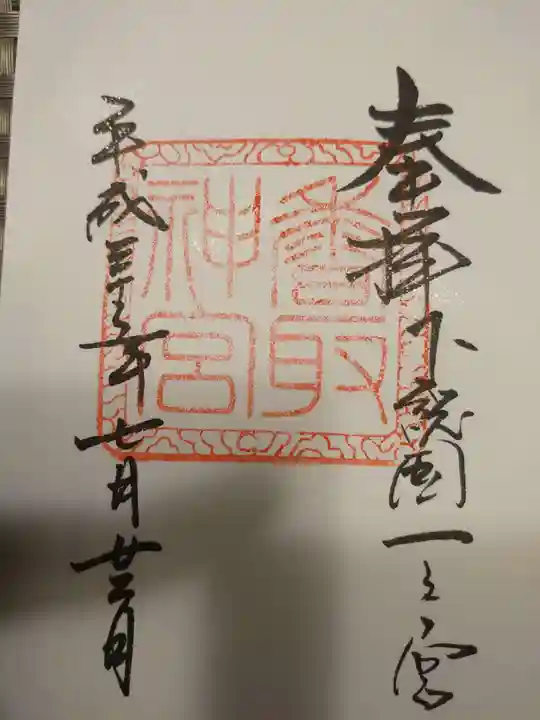 奉拝 下総国一之宮
香取
神宮
平成 年七月廿二日